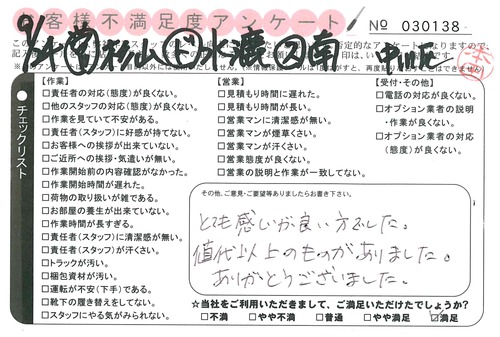 お客様不満足度アンケート
№ 030138
チェックリスト
【作業】
□責任者の対応(態度)が良くない。
□他のスタッフの対応(態度)が良くない。
□作業を見ていて不安がある。
□責任者(スタッフ)に好感が持てない。
□お客様への挨拶が出来ていない。
□ご近所への挨拶・気遣いが無い。
□作業開始前の内容確認がなかった。
□作業開始時間が遅れた。
□荷物の取り扱いが雑である。
□お部屋の養生が出来ていない。
□作業時間が長すぎる。
□責任者(スタッフ)に清潔感が無い。
□責任者(スタッフ)が汗くさい。
□トラックが汚い。
□梱包資材が汚い。
□運転が不安(下手)である。
□靴下の履き替えをしてない。
□スタッフにやる気がみられない。
【営業】
□見積もり時間に遅れた。
□見積もり時間が長い。
□営業マンに清潔感が無い。
□営業マンが煙草くさい。
□営業マンが汗くさい。
□営業態度が良くない。
□営業の説明と作業が一致してない。
【受付・その他】
□電話の対応が良くない。
□オプション業者の説明
・作業が良くない。
□オプション業者の対応
(態度)が良くない。
その他、ご意見・ご要望等ありましたらお書き下さい。
とても感いが良い方でした。
値代以上のものがありました。
ありがとうございました。
☆当社をご利用いただきまして、ご満足いただけたでしょうか?
□不満 □やや不満 □普通 □やや満足 ☑満足